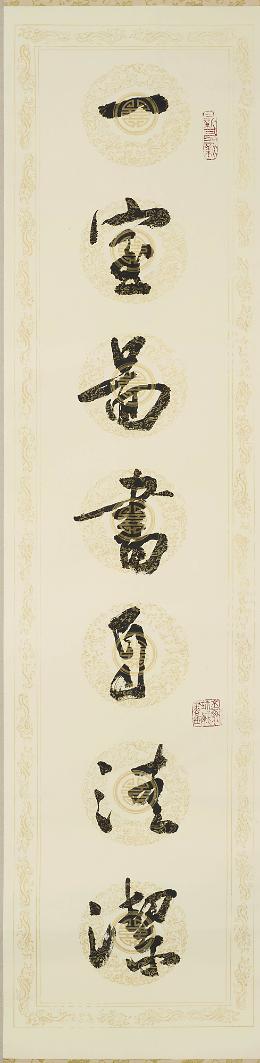 一室圖書自清潔